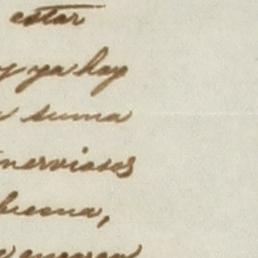 estar
y ya hay
suma
nerviosos
buena,